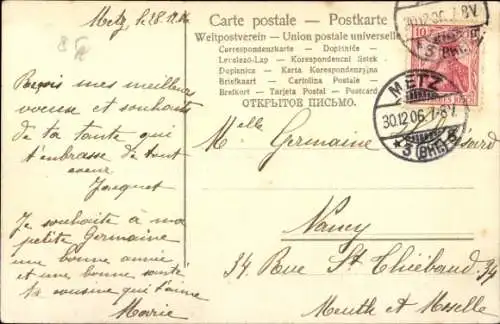 Metz, le 28.12.06
Carte postale — Postkarte
Weltpostverein — Union postale universelle
Correspondenzkarte — Dopisnice
Levelező-Lap — Korespondenční lístek
Dopisnica — Karta Korespondencyjna
Briefkaart — Cartolina Postale
Brefkort — Tarjeta Postal — Postcard
ОТКРЫТОЕ ПИСЬМО.
30.12.06. 7-8V
* 3 (BHF.)
10
METZ
30.12.06. 7-8V.
* 3 (BHF.) b
Reçois mes meilleurs
voeux et souhaits
de ta tante qui
t'embrasse de tout
coeur
Jacquet
Je souhaite à ma
petite Germaine
une bonne année
et une bonne santé
ta cousine qui t'aime
Marie
Melle Germaine
Nancy
34 Rue St Thiébaud 34
Meurthe et Moselle